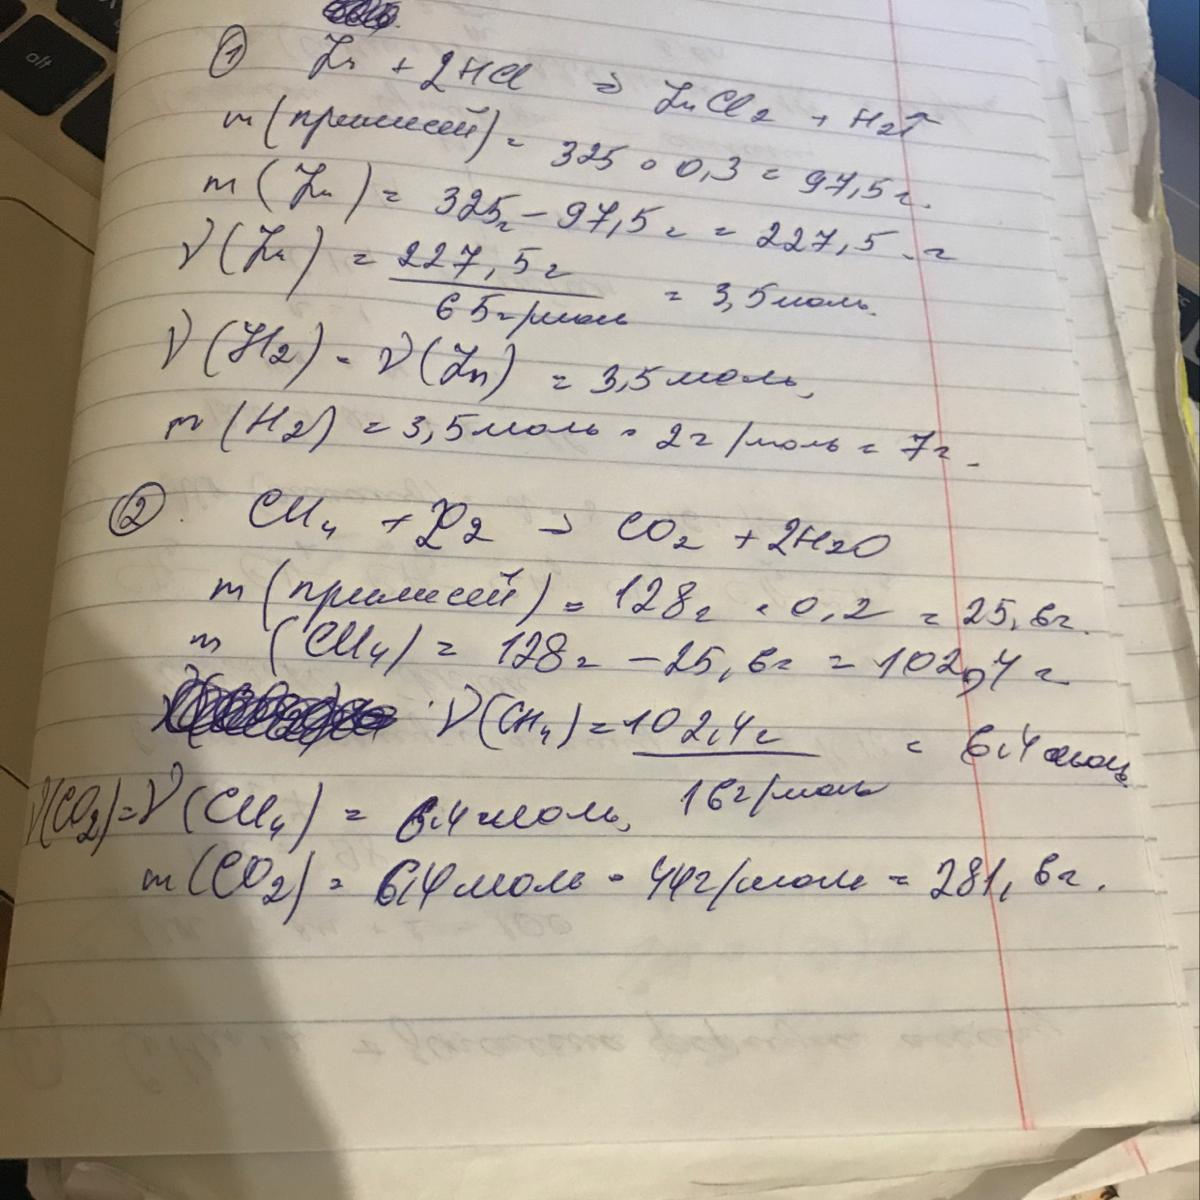 alt
① Zn + 2HCl ⇒ ZnCl2 + H2↑
m(примесей) = 325 · 0,3 = 97,5г.
m(Zn) = 325г - 97,5г = 227,5 г
ν(Zn) = 227,5г / 65г/моль = 3,5моль.
ν(H2) = ν(Zn) = 3,5моль,
m(H2) = 3,5моль · 2г/моль = 7г.
② CH4 + 2O2 → CO2 + 2H2O
m(примесей) = 128г · 0,2 = 25,6г.
m(CH4) = 128г - 25,6г = 102,4г
ν(CH4) = 102,4г / 16г/моль = 6,4моль
ν(CO2) = ν(CH4) = 6,4моль,
m(CO2) = 6,4моль · 44г/моль = 281,6г.